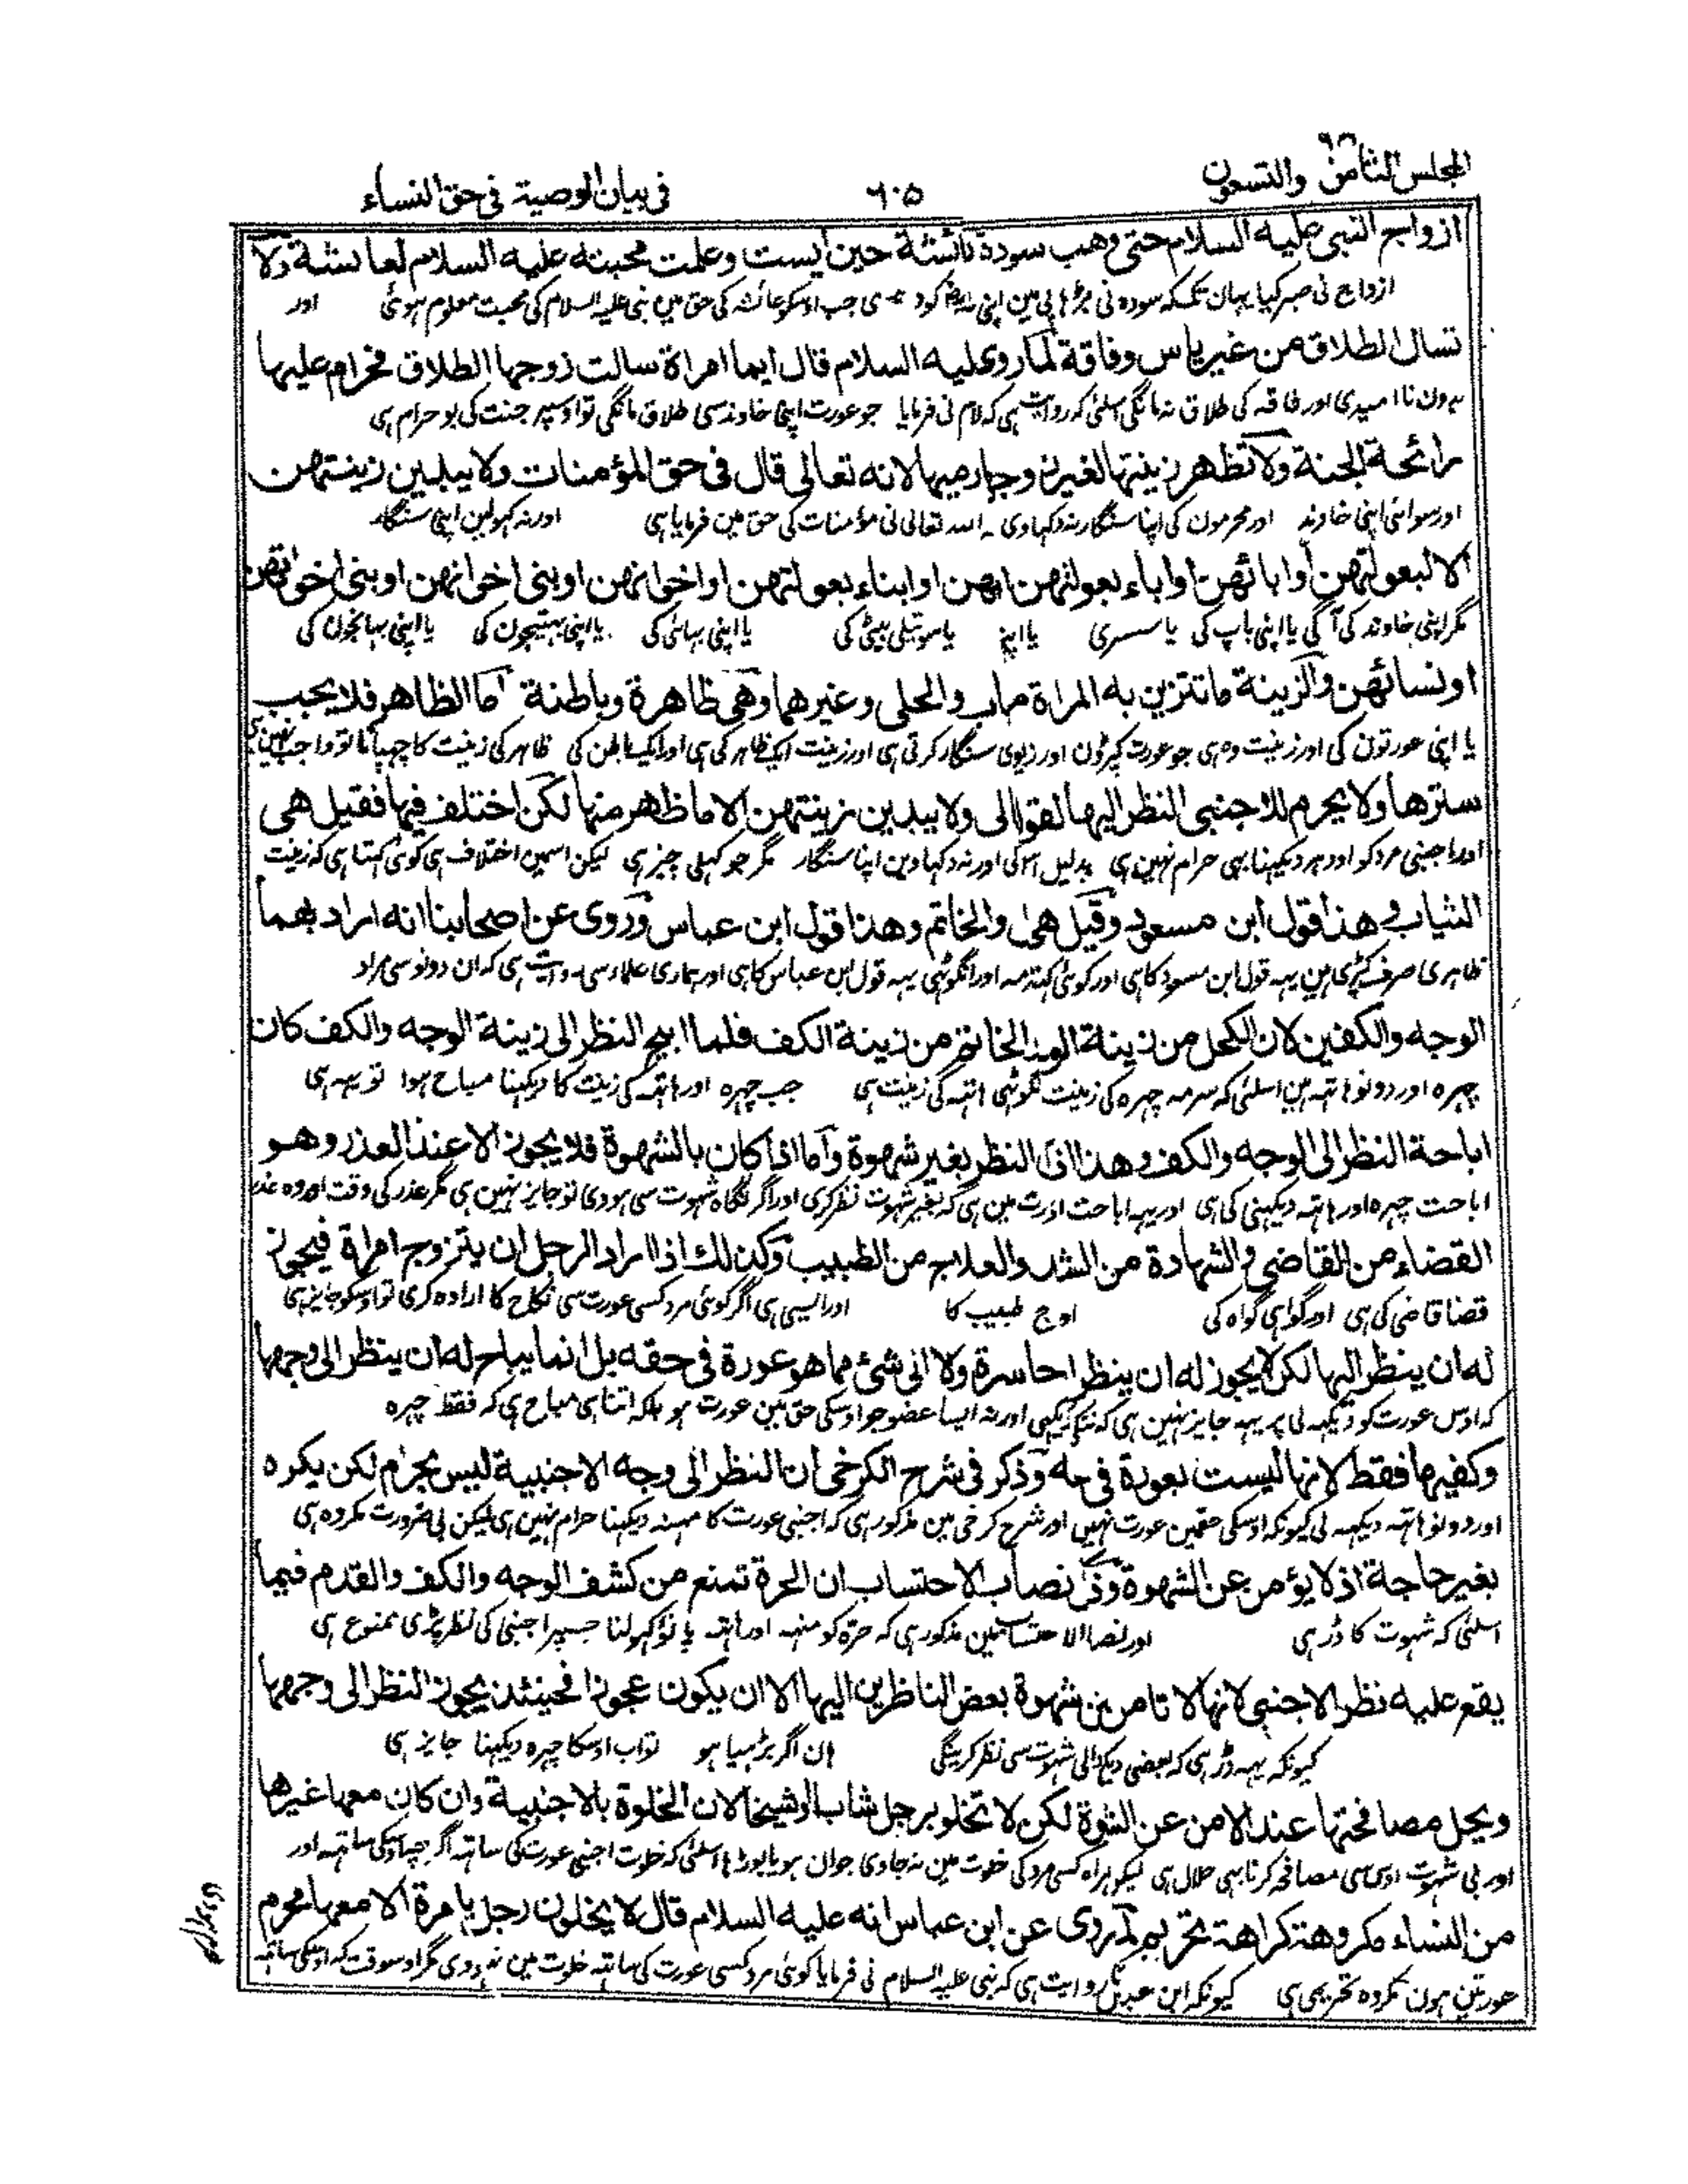 المجلس الثامن والتسعون ٩٨
٦٠٥
فی بیان الوصیة فی حق النساء
ازواج النبی علیه السلام حتی وهب سودة حین ایست وعلمت محبته علیه السلام لعائشة ولا
ازواج نی صبر کیا یہان تک کہ سودہ نی بڑہاپی مین اپنی جب اوسکو عائشہ کی حق مین نبی علیہ السلام کی محبت معلوم ہوئی اور
تسال الطلاق من غیر باس وفاقة لما روی علیه السلام قال ایما امراة سالت زوجها الطلاق فحرام علیها
نا امیدی اور فاقہ کی طلاق نہ مانگی اسلئی کہ روایت ہی کہ نی فرمایا جو عورت اپنی خاوند سی طلاق مانگی تو اوسپر جنت کی بو حرام ہی
رائحة الجنة ولا تظهر زینتها لغیر زوجها ومحارمها لانه تعالی قال فی حق المؤمنات ولا یبدین زینتهن
اور سوائی اپنی خاوند اور محرمون کی اپنا سنگار نہ دکہاوی اللہ تعالی نی مؤمنات کی حق مین فرمایا ہی اور نہ کہولین اپنی سنگار
الا لبعولتهن او ابائهن او اباء بعولتهن او ابناء بعولتهن او اخوانهن او بنی اخوانهن او بنی اخواتهن
مگر اپنی خاوند کی آگی یا اپنی باپ کی یا سسری یا اپنی یا سوتیلی بیٹی کی یا اپنی بہائی کی یا اپنی بہتیجون کی یا اپنی بہانجون کی
او نسائهن والزینة ما تتزین به المراة والحلی وغیرهما وهی ظاهرة وباطنة اما الظاهر فلا یجب
یا اپنی عورتون کی اور زینت وہ ہی جو عورت کپڑون اور زیور سی سنگار کرتی ہی اور زینت ایک ظاہر کی ہی اور ایک باطن کی ظاہر کی زینت کا چہپانا تو واجب نہین
سترها ولا یحرم للاجنبی النظر الیها لقوله ولا یبدین زینتهن الا ما ظهر منها لکن اختلف فیها فقیل هی
اور اجنبی مرد کو اودہر دیکہنا بہی حرام نہین ہی بدلیل اور نہ دکہاوین اپنا سنگار مگر جو کہلی چیز ہی لیکن اسمین اختلاف ہی کوئی کہتا ہی کہ زینت
الثیاب وهذا قول ابن مسعود وقیل هی والخاتم وهذا قول ابن عباس وروی عن اصحابنا انه اراد بهما
ظاہری صرف کپڑی ہین یہہ قول ابن مسعود کا ہی اور کوئی اور انگوٹہی یہہ قول ابن عباس کا ہی اور ہماری علماء سی روایت ہی کہ ان دونو سی مراد
الوجه والکفین لان الکحل من زینة الوجه والخاتم من زینة الکف فلما ابیح النظر الی زینة الوجه والکف کان
چہرہ اور دونو ہاتہہ ہین اسلئی کہ سرمہ چہرہ کی زینت انگوٹہی ہاتہہ کی زینت ہی جب چہرہ اور ہاتہہ کی زینت کا دیکہنا مباح ہوا تو یہہ ہی
اباحة النظر الی الوجه والکف وهذا اذا النظر بغیر شهوة واما اذا کان بالشهوة فلا یجوز الا عند العذر وهو
اباحت چہرہ اور ہاتہہ دیکہنی کی ہی اور یہہ اباحت مین ہی کہ بغیر شہوت نظر کری اور اگر نگاہ شہوت سی ہو وی تو جایز نہین ہی مگر عذر کی وقت اور وہ عذر
القضاء من القاضی والشهادة من الشهد والعلاج من الطبیب وکذلك اذا اراد الرجل ان یتزوج امراة فیجوز
قضا قاضی کی ہی اور گواہی گواہ کی طبیب کا اور ایسی ہی اگر کوئی مرد کسی عورت سی نکاح کا ارادہ کری تو اوسکو جایز ہی
له ان ینظر الیها لکن لا یجوز له ان ینظر حاسرة ولا الی شئ مما هو عورة فی حقه بل انما یباح له ان ینظر الی وجهها
کہ اوس عورت کو دیکہہ لی پر یہہ جایز نہین ہی کہ اور نہ ایسا عضو جو اوسکی حق مین عورت ہو بلکہ اتنا ہی مباح ہی کہ فقط چہرہ
وکفیها فقط لانها لیست بعورة فی حقه وذکر فی شرح الکرخی ان النظر الی وجه الاجنبیة لیس بحرام لکن یکره
اور دونو ہاتہہ دیکہہ لی کیونکہ اوسکی حقمین عورت نہین اور شرح کرخی مین مذکور ہی کہ اجنبی عورت کا مہنہ دیکہنا حرام نہین ہی لیکن بی ضرورت مکروہ ہی
بغیر حاجة اذ لا یؤمن عن الشهوة وذکر نصاب الاحتساب ان الحرة تمنع من کشف الوجه والکف والقدم فیما
اسلئی کہ شہوت کا ڈر ہی اور نصاب الاحتساب مین مذکور ہی کہ حرّہ کو منہہ اور ہاتہہ پانو کہولنا جسپر اجنبی کی نظر پڑی ممنوع ہی
یقع علیه نظر الاجنبی لانها لا تامن من شهوة بعض الناظرین الیها الا ان یکون عجوزا فحینئذ یجوز النظر الی وجهها
کیونکہ یہہ ڈر ہی کہ بعضی دیکہنی والی شہوت سی نظر کرینگی ہان اگر بڑہیا ہو تو اب اوسکا چہرہ دیکہنا جایز ہی
ویحل مصافحتها عند الامن عن الشهوة لکن لا تخلو برجل شابا او شیخا لان الخلوة بالاجنبیة وان کان معها غیرها
اور بی شہوت اوس سی مصافحہ کرنا بہی حلال ہی لیکن ہمراہ کسی مرد کی خلوت مین نہ جاوی جوان ہو یا بوڑہا اسلئی کہ خلوت اجنبی عورت کی ساتہہ اگرچہ اوسکی ساتہہ اور
من النساء مکروهة کراهة تحریم لما روی عن ابن عباس انه علیه السلام قال لا یخلون رجل بامرة الا معها محرم
عورتین ہون مکروہ تحریمی ہی کیونکہ ابن عباس روایت ہی کہ نبی علیہ السلام نی فرمایا کوئی مرد کسی عورت کی ساتہہ خلوت مین نہ ہووی مگر اوسوقت کہ اوسکی ساتہہ